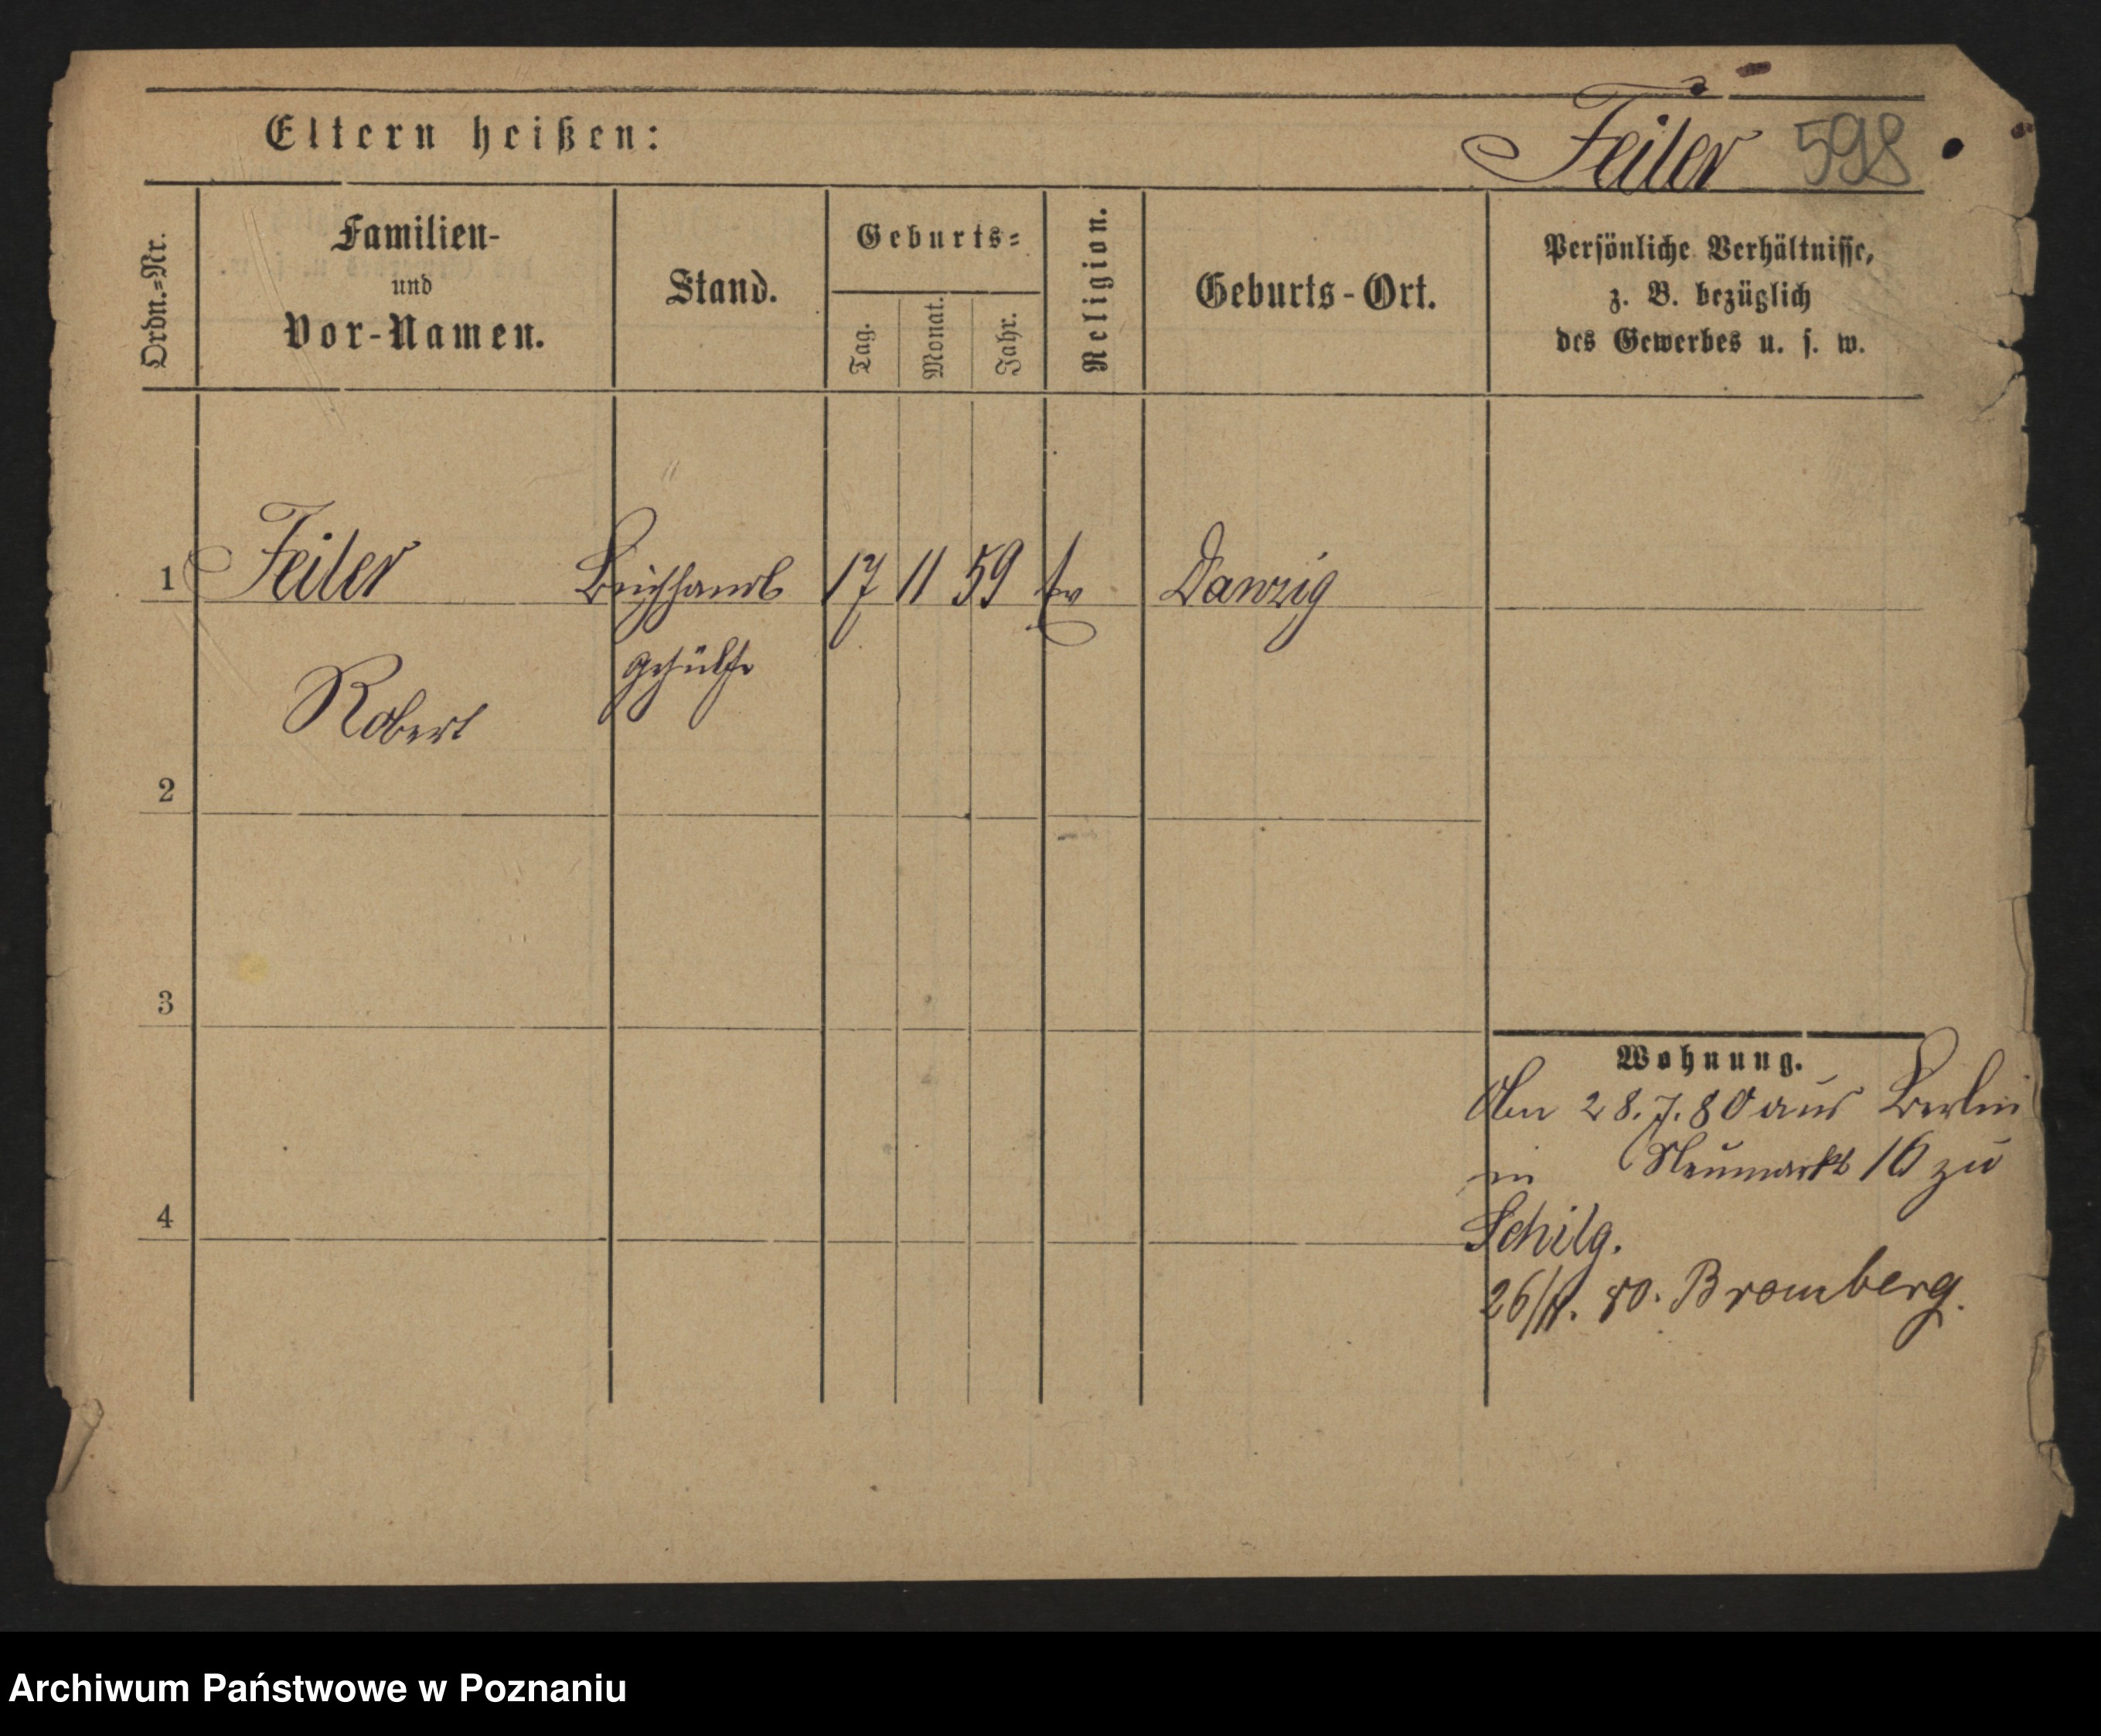 Eltern heißen:
Feiler 598
Ordn.=Nr.
Familien-
und
Vor-Namen.
Stand.
Geburts=
Tag.
Monat.
Jahr.
Religion.
Geburts-Ort.
Persönliche Verhältnisse,
z. B. bezüglich
des Gewerbes u. s. w.
1 Feiler Buchhandl 17 11 59 ev Danzig
gehülfe
Robert
2
3
4
Wohnung.
Am 28.7.80 aus Berlin
in Neumarkt 16 zu
Schilg.
26/11. 80. Bromberg.
Archiwum Państwowe w Poznaniu